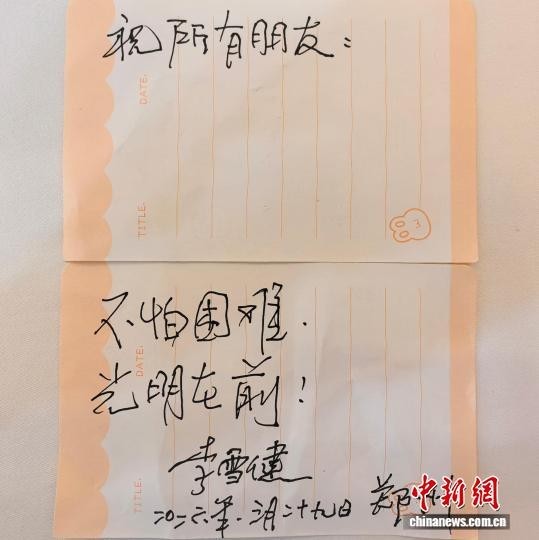 祝所有朋友：
DATE.
TITLE.
3
不怕困难.
光明在前！
李雪健
二〇二六年.月二十九日
郑
DATE.
TITLE.
中新网
chinanews.com